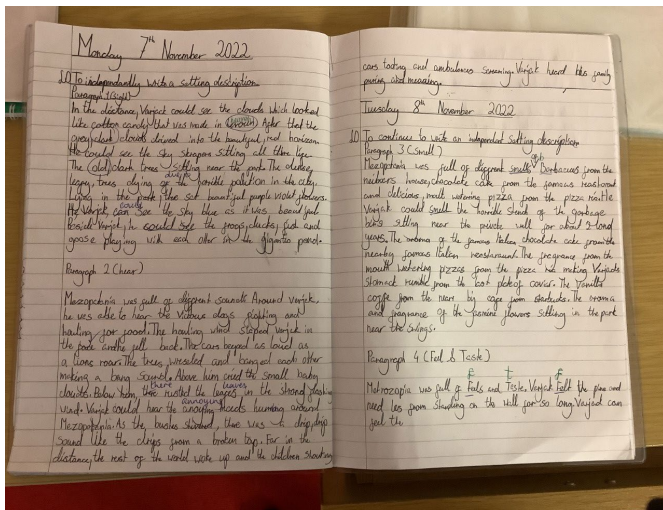 Monday 7th November 2022
LO To independantly write a setting description
Paragraph 1 (Sight)
In the distance, Varjak could see the clouds which looked
like cotton candy that was made in After that the
grey dark clouds drived into the beautiful, red horizon.
He could see the sky skrapers sitting all there like
The (old) dark trees sitting near the park. The dusty
leafy, trees dying of the horrible pollution in the city.
Lying in the park, the set beautiful purple violet flowers.
could
He Varjak, can see the sky blue as it was beautiful
Beside Varjak, he could see the frogs, ducks, fish and
goose playing with each other in the gigantic pond.
Paragraph 2 (hear)
Mezopotania was full of different sounds Around varjak,
he was able to hear the Viscous dogs fighting and
hauling for food. The howling wind steped varjak in
the face and he fell back. The cars beyed as loud as
a lions roar. The trees, wresled and banged each other
making a bang sound. Above him cried the small baby
there leaves
clouds. Below him, rusled the leages in the strong
annoying
wind. Varjak could hear the annoying moeds huming around
Mezopotapia. As the bushes shivered, there was a drip, drip
sound like the drips from a broken tap. Far in the
distance, the rest of the world woke up and the children shouting
cars tooting and ambulances screaming. Varjak heard his family
purring and meawing.
Tuesday 8th November 2022
LO To continue to write an independent Setting description
Paragraph 3 (Smell)
Mezopotania was full of different smells Barbacues from the
neibors house, chocolate cake from the famous reastorant
and delicious, moth watering pizza from the pizza
Varjak could smell the horrible stench of the garbage
bins sitting near the private wall for about 2 long
years. The aroma of the famous Italian chocolate cake from the
nearby famous italian reastaraunt. The fregrance from the
mouth watering pizzas from the pizza making Varjaks
stomach rumble from the lost of caviar. The Vanilla
coffe from the near by cafe from starbucks. The aroma
and fragrance of the jasmine flowers setting in the park
near the swings.
Paragraph 4 (Feel & Taste)
F t F
was full of Feels and Taste. Varjak Felt the pins and
need les from Standing on the Hill for so long. Varjak can
feel the